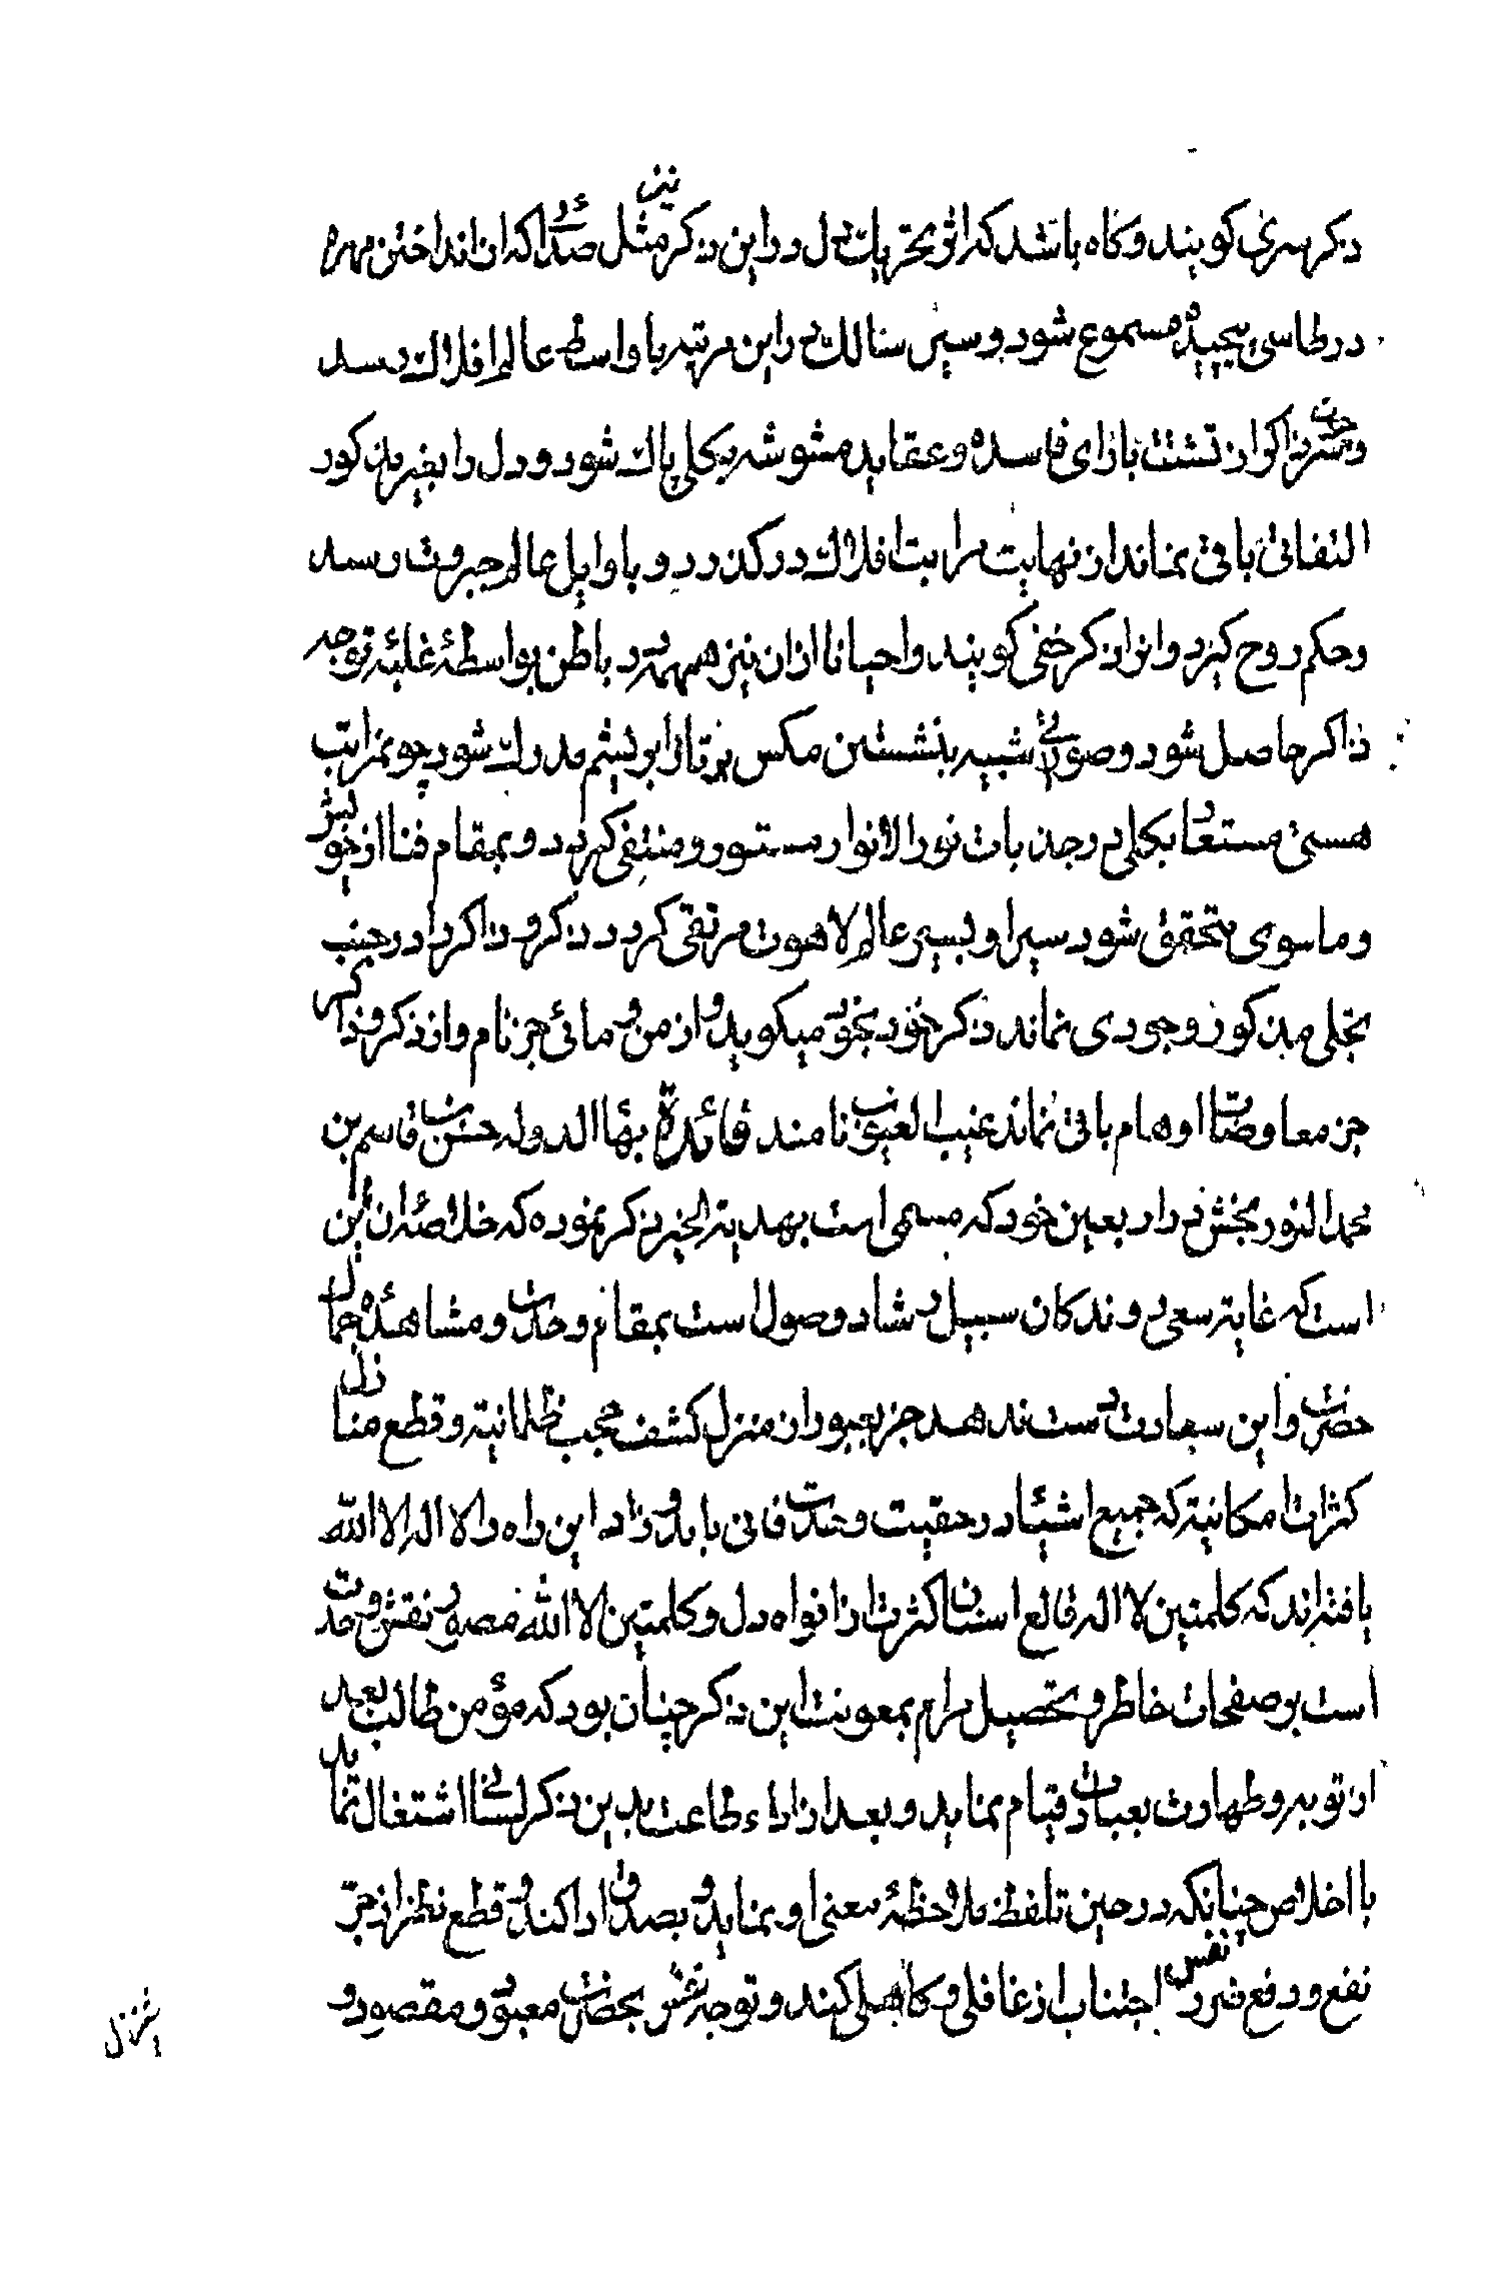 ذکر سری کویند و کاه باشد که اثر تحریک دل در این ذکر نیز مثل صدائی که از انداختن مهره
در طاسی پیچیده مسموع شود و سیر سالک در این مرتبه باواسط عالم افلاک رسد
و چون سر ذاکر از تشبث بارای فاسده و عقاید مشوشه بکلی پاک شود و دل را بغیر مذکور
التفاتی باقی نماند از نهایت مراتب افلاک درکذرد و باوایل عالم جبروت رسد
و حکم روح کیرد و انرا ذکر خفی کویند و احیانا ازان نیز همهمه در باطن بواسطهٔ غلبهٔ توجه
ذاکر حاصل شود و صوتی شبیه بنشستن مکس بر تار ابریشم مدرک شود چو بمراتب
هستی مستعار بکلی در جذبات نور الانوار مستور و منتفی کردد و بمقام فنا از خویش
و ماسوی متحقق شود سیر او بسیر عالم لاهوت مرتقی کردد ذکر و ذاکر را در جنب
تجلی مذکور وجودی نماند ذکر خود بخود میکوید و از من و مائی جز نام و از ذکر و ذاکر
جز معاوضات اوهام باقی نماند غیب الغیوب نامند فائدة بهاء الدوله حسن بن قاسم بن
محمد النور بخش در اربعین خود که مسمی است بهدیة الخیر ذکر نموده که خلاصهٔ ان این
است که غایة سعی روندکان سبیل رشاد وصول است بمقام وحدت و مشاهدهٔ جمال
حضرت و این سعادت دست ندهد جز بعبور از منزل کشف حجب ظلمانیة و قطع منازل
کثرات امکانیة که جمیع اشیاء در حقیت وحدت فانی یابد و زاد این راه را لا اله الا الله
یافته‌اند که کلمتین لا اله قالع اسنان کثرت از افواه دل و کلمتین الا الله مصور نقش وحدت
است بر صفحات خاطر و تحصیل مرام بمعونت این ذکر چنان بود که مؤمن طالب بعد
از توبه و طهارت بعبادت قیام نماید و بعد از اداء طاعت بدین ذکر لسانی اشتغال نماید
با اخلاص چنانکه در حین تلفظ ملاحظهٔ معنی او بنماید و بصدق ادا کند و قطع نظر از جر
نفع و دفع ضرر نفس اجتناب از غافلی و کاهلی کند و توجه نفس بحضرت معبود و مقصود و